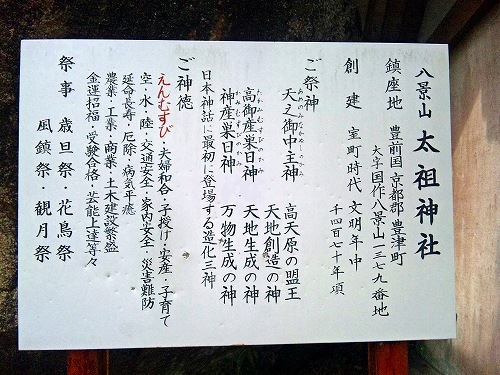 八景山 太祖神社
鎮座地 豊前国 京都郡 豊津町
大字国作八景山一三七九番地
創建 室町時代 文明年中
千四百七十年頃
ご祭神
あめのみなかぬしのかみ
天之御中主神 高天原の盟主
天地創造の神
たかみむすびのかみ
高御産巣日神 天地生成の神
かみむすびのかみ
神産巣日神 万物生成の神
日本神話に最初に登場する造化三神
ご神徳
えんむすび・夫婦和合・子授け・安産・子育て
空・水・陸・交通安全・家内安全・災害難防
延命長寿・厄除・病気平癒
農業・工業・商業・土木建設繁盛
金運招福・受験合格・芸能上達等々
祭事 歳旦祭・花鳥祭
風鎮祭・観月祭